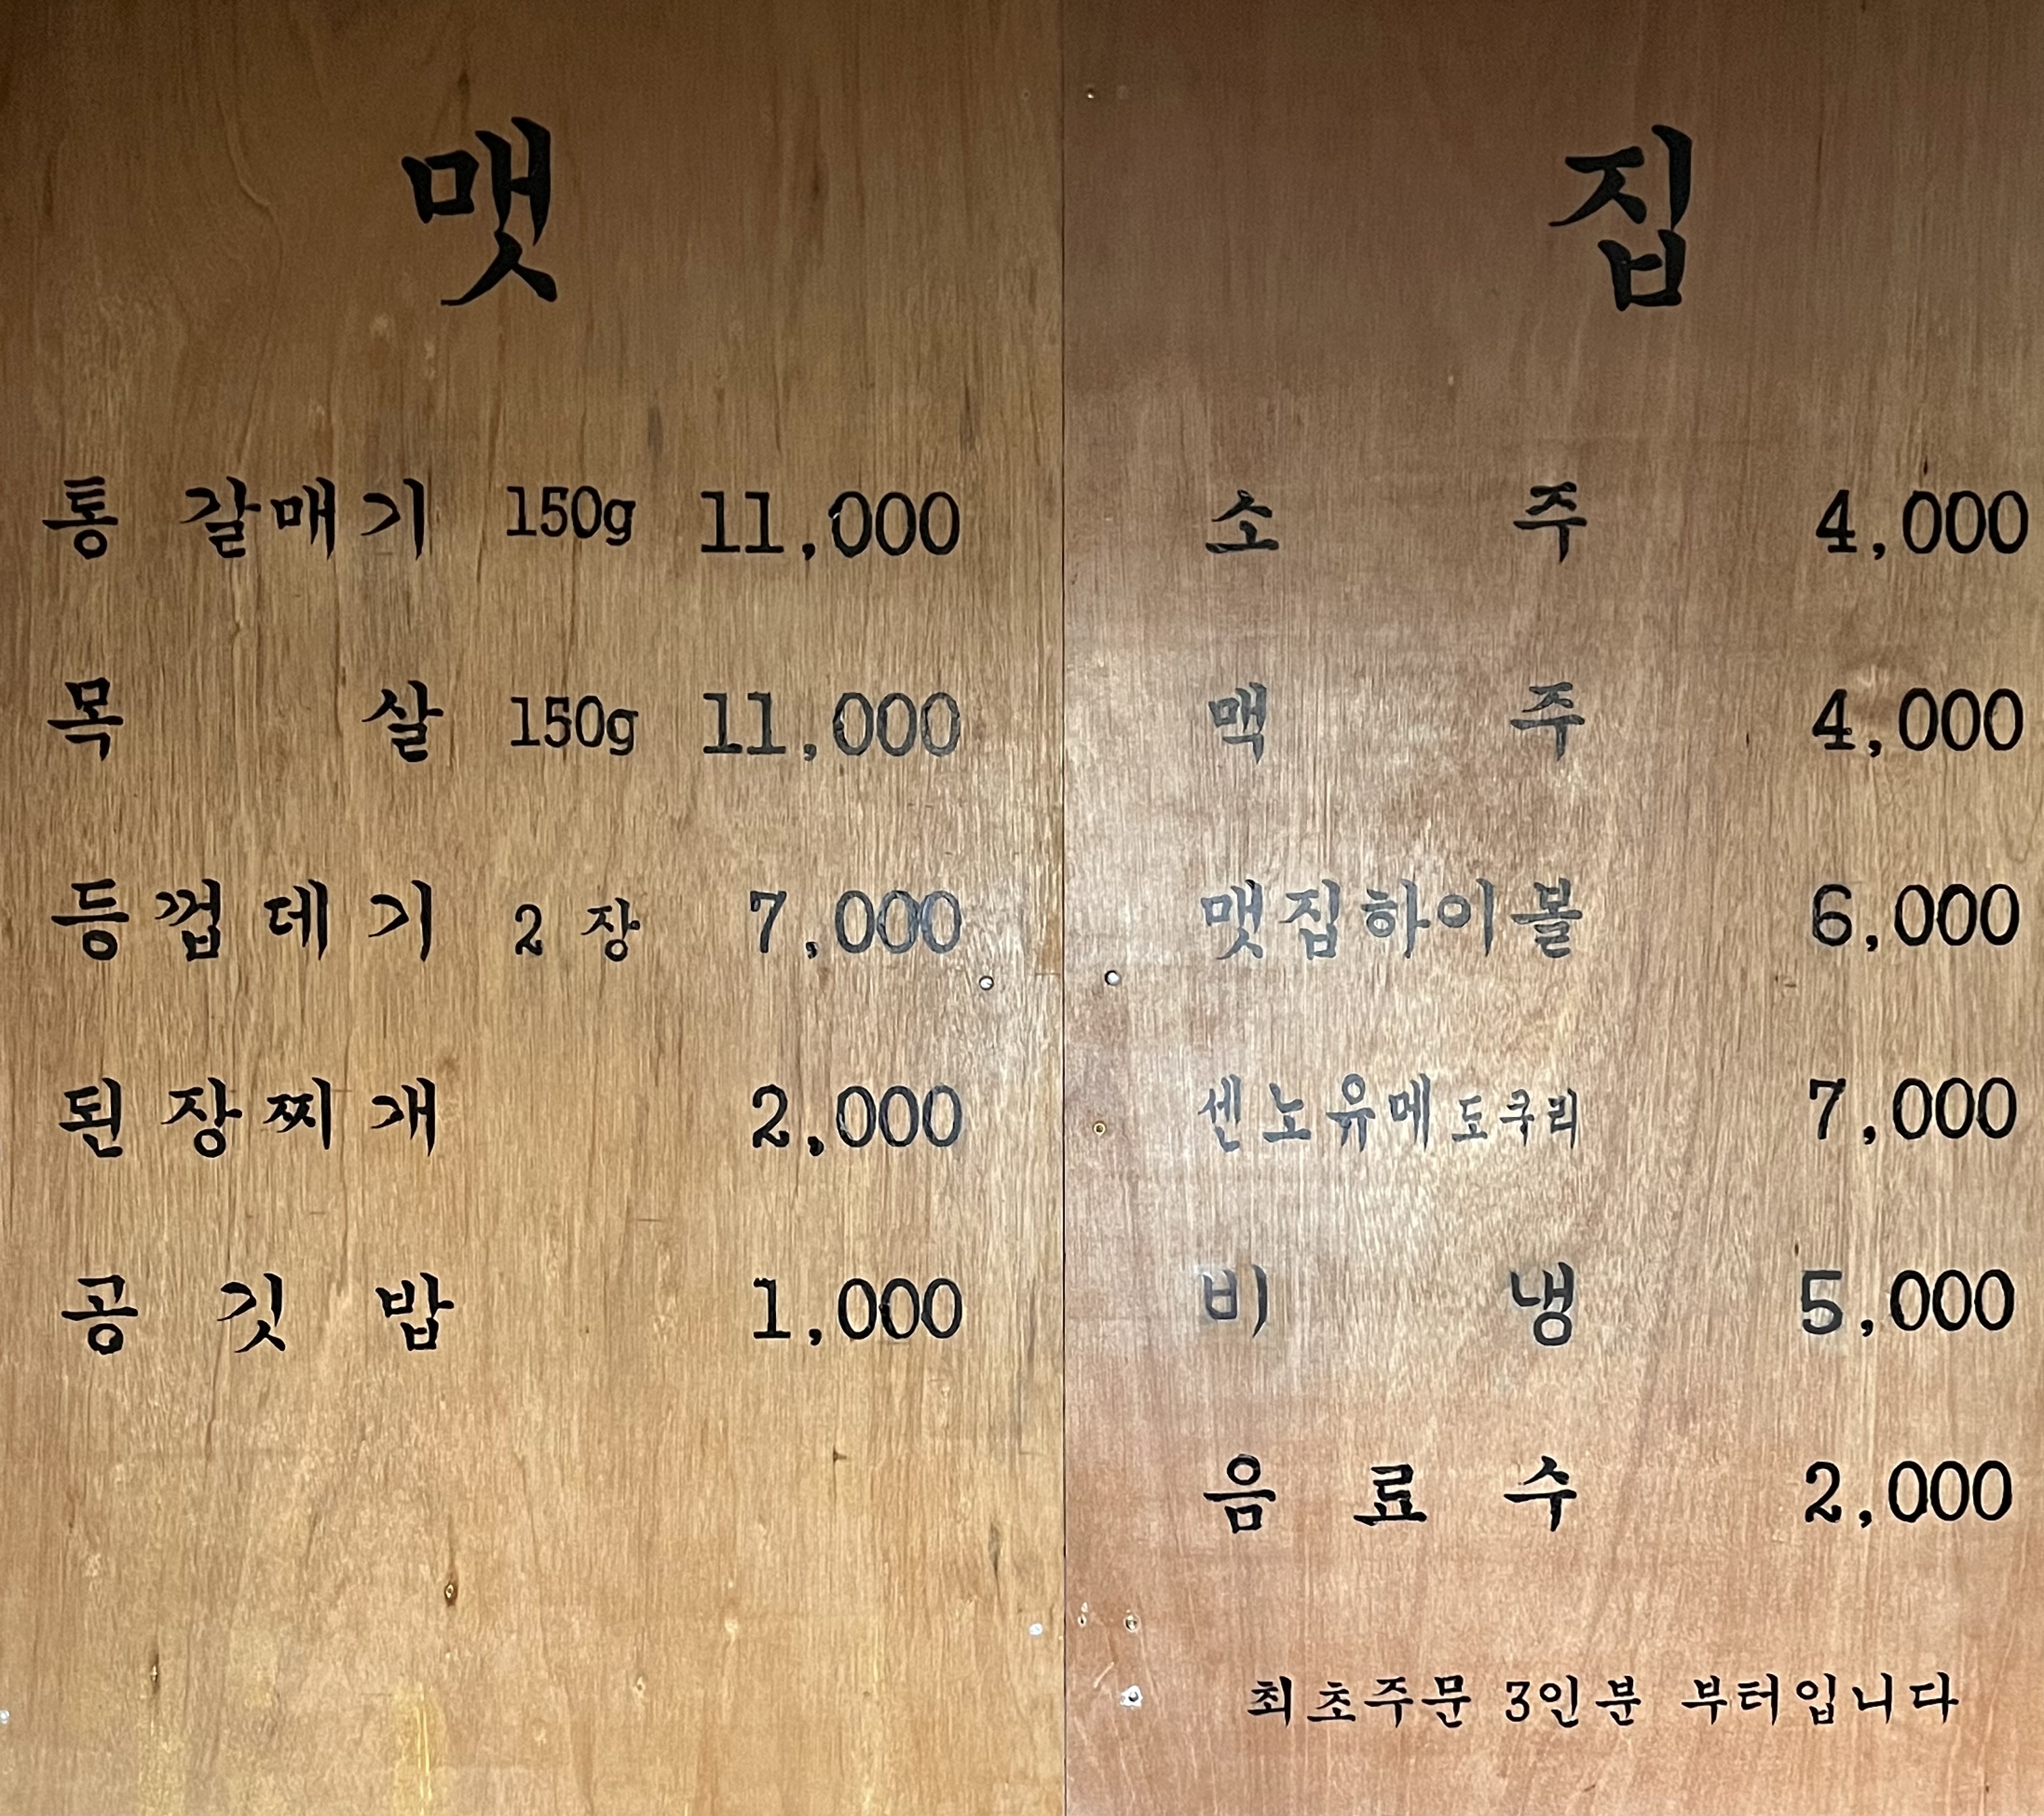 맷 집
통 갈매기 150g 11,000
목 살 150g 11,000
등껍데기 2 장 7,000
된장찌개 2,000
공 깃 밥 1,000
소 주 4,000
맥 주 4,000
맷집하이볼 6,000
센노유메 도쿠리 7,000
비 냉 5,000
음 료 수 2,000
최초주문 3인분 부터입니다